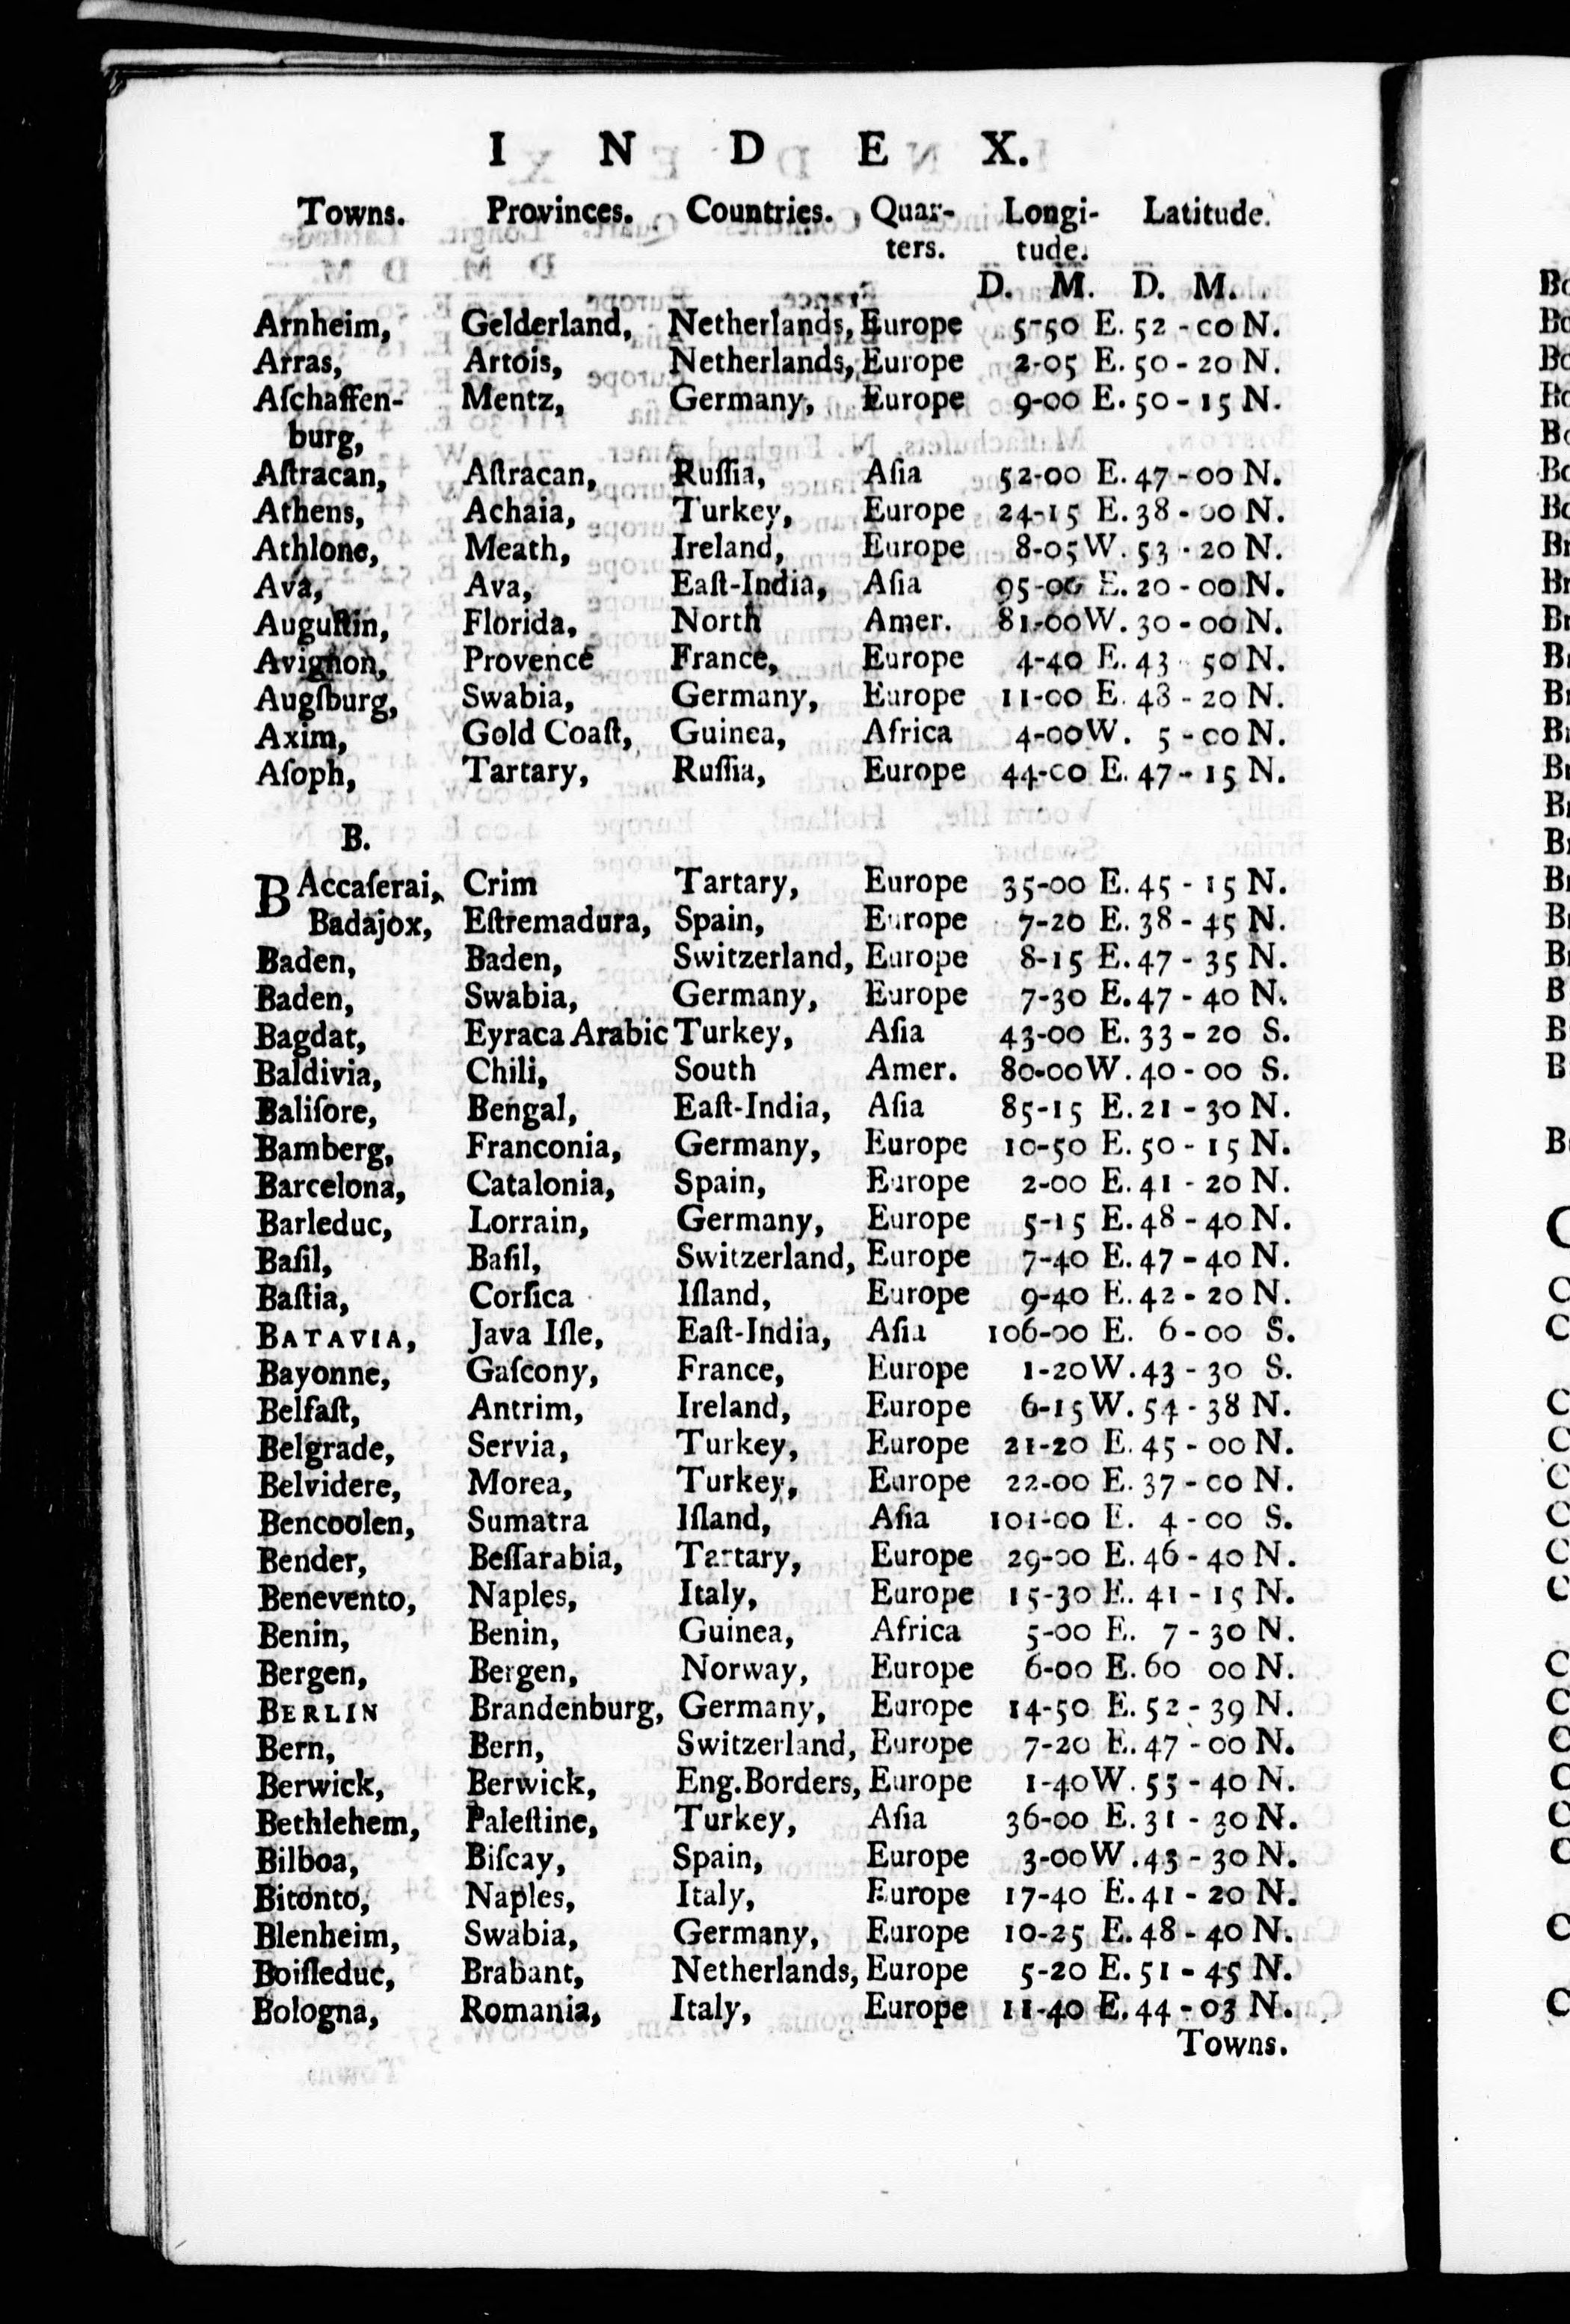 I N D E X.
Towns. Provinces. Countries. Quar- Longi- Latitude.
ters. tude.
D. M. D. M.
Arnheim, Gelderland, Netherlands, Europe 5-50 E. 52-00 N.
Arras, Artois, Netherlands, Europe 2-05 E. 50-20 N.
Aſchaffen- Mentz, Germany, Europe 9-00 E. 50-15 N.
burg,
Aſtracan, Aſtracan, Ruſſia, Aſia 52-00 E. 47-00 N.
Athens, Achaia, Turkey, Europe 24-15 E. 38-00 N.
Athlone, Meath, Ireland, Europe 8-05 W. 53-20 N.
Ava, Ava, Eaſt-India, Aſia 95-00 E. 20-00 N.
Auguſtin, Florida, North Amer. 81-00 W. 30-00 N.
Avignon, Provence France, Europe 4-40 E. 43 50 N.
Augſburg, Swabia, Germany, Europe 11-00 E. 48-20 N.
Axim, Gold Coaſt, Guinea, Africa 4-00 W. 5-00 N.
Aſoph, Tartary, Ruſſia, Europe 44-00 E. 47-15 N.
B.
BAccaſerai, Crim Tartary, Europe 35-00 E. 45-15 N.
Badajox, Eſtremadura, Spain, Europe 7-20 E. 38-45 N.
Baden, Baden, Switzerland, Europe 8-15 E. 47-35 N.
Baden, Swabia, Germany, Europe 7-30 E. 47-40 N.
Bagdat, Eyraca Arabic Turkey, Aſia 43-00 E. 33-20 S.
Baldivia, Chili, South Amer. 80-00 W. 40-00 S.
Baliſore, Bengal, Eaſt-India, Aſia 85-15 E. 21-30 N.
Bamberg, Franconia, Germany, Europe 10-50 E. 50-15 N.
Barcelona, Catalonia, Spain, Europe 2-00 E. 41-20 N.
Barleduc, Lorrain, Germany, Europe 5-15 E. 48-40 N.
Baſil, Baſil, Switzerland, Europe 7-40 E. 47-40 N.
Baſtia, Corſica Iſland, Europe 9-40 E. 42-20 N.
BATAVIA, Java Iſle, Eaſt-India, Aſia 106-00 E. 6-00 S.
Bayonne, Gaſcony, France, Europe 1-20 W. 43-30 S.
Belfaſt, Antrim, Ireland, Europe 6-15 W. 54-38 N.
Belgrade, Servia, Turkey, Europe 21-20 E. 45-00 N.
Belvidere, Morea, Turkey, Europe 22-00 E. 37-00 N.
Bencoolen, Sumatra Iſland, Aſia 101-00 E. 4-00 S.
Bender, Beſſarabia, Tartary, Europe 29-00 E. 46-40 N.
Benevento, Naples, Italy, Europe 15-30 E. 41-15 N.
Benin, Benin, Guinea, Africa 5-00 E. 7-30 N.
Bergen, Bergen, Norway, Europe 6-00 E. 60 00 N.
BERLIN Brandenburg, Germany, Europe 14-50 E. 52-39 N.
Bern, Bern, Switzerland, Europe 7-20 E. 47-00 N.
Berwick, Berwick, Eng. Borders, Europe 1-40 W. 55-40 N.
Bethlehem, Paleſtine, Turkey, Aſia 36-00 E. 31-30 N.
Bilboa, Biſcay, Spain, Europe 3-00 W. 43-30 N.
Bitonto, Naples, Italy, Europe 17-40 E. 41-20 N.
Blenheim, Swabia, Germany, Europe 10-25 E. 48-40 N.
Boiſleduc, Brabant, Netherlands, Europe 5-20 E. 51-45 N.
Bologna, Romania, Italy, Europe 11-40 E. 44-03 N.
Towns.